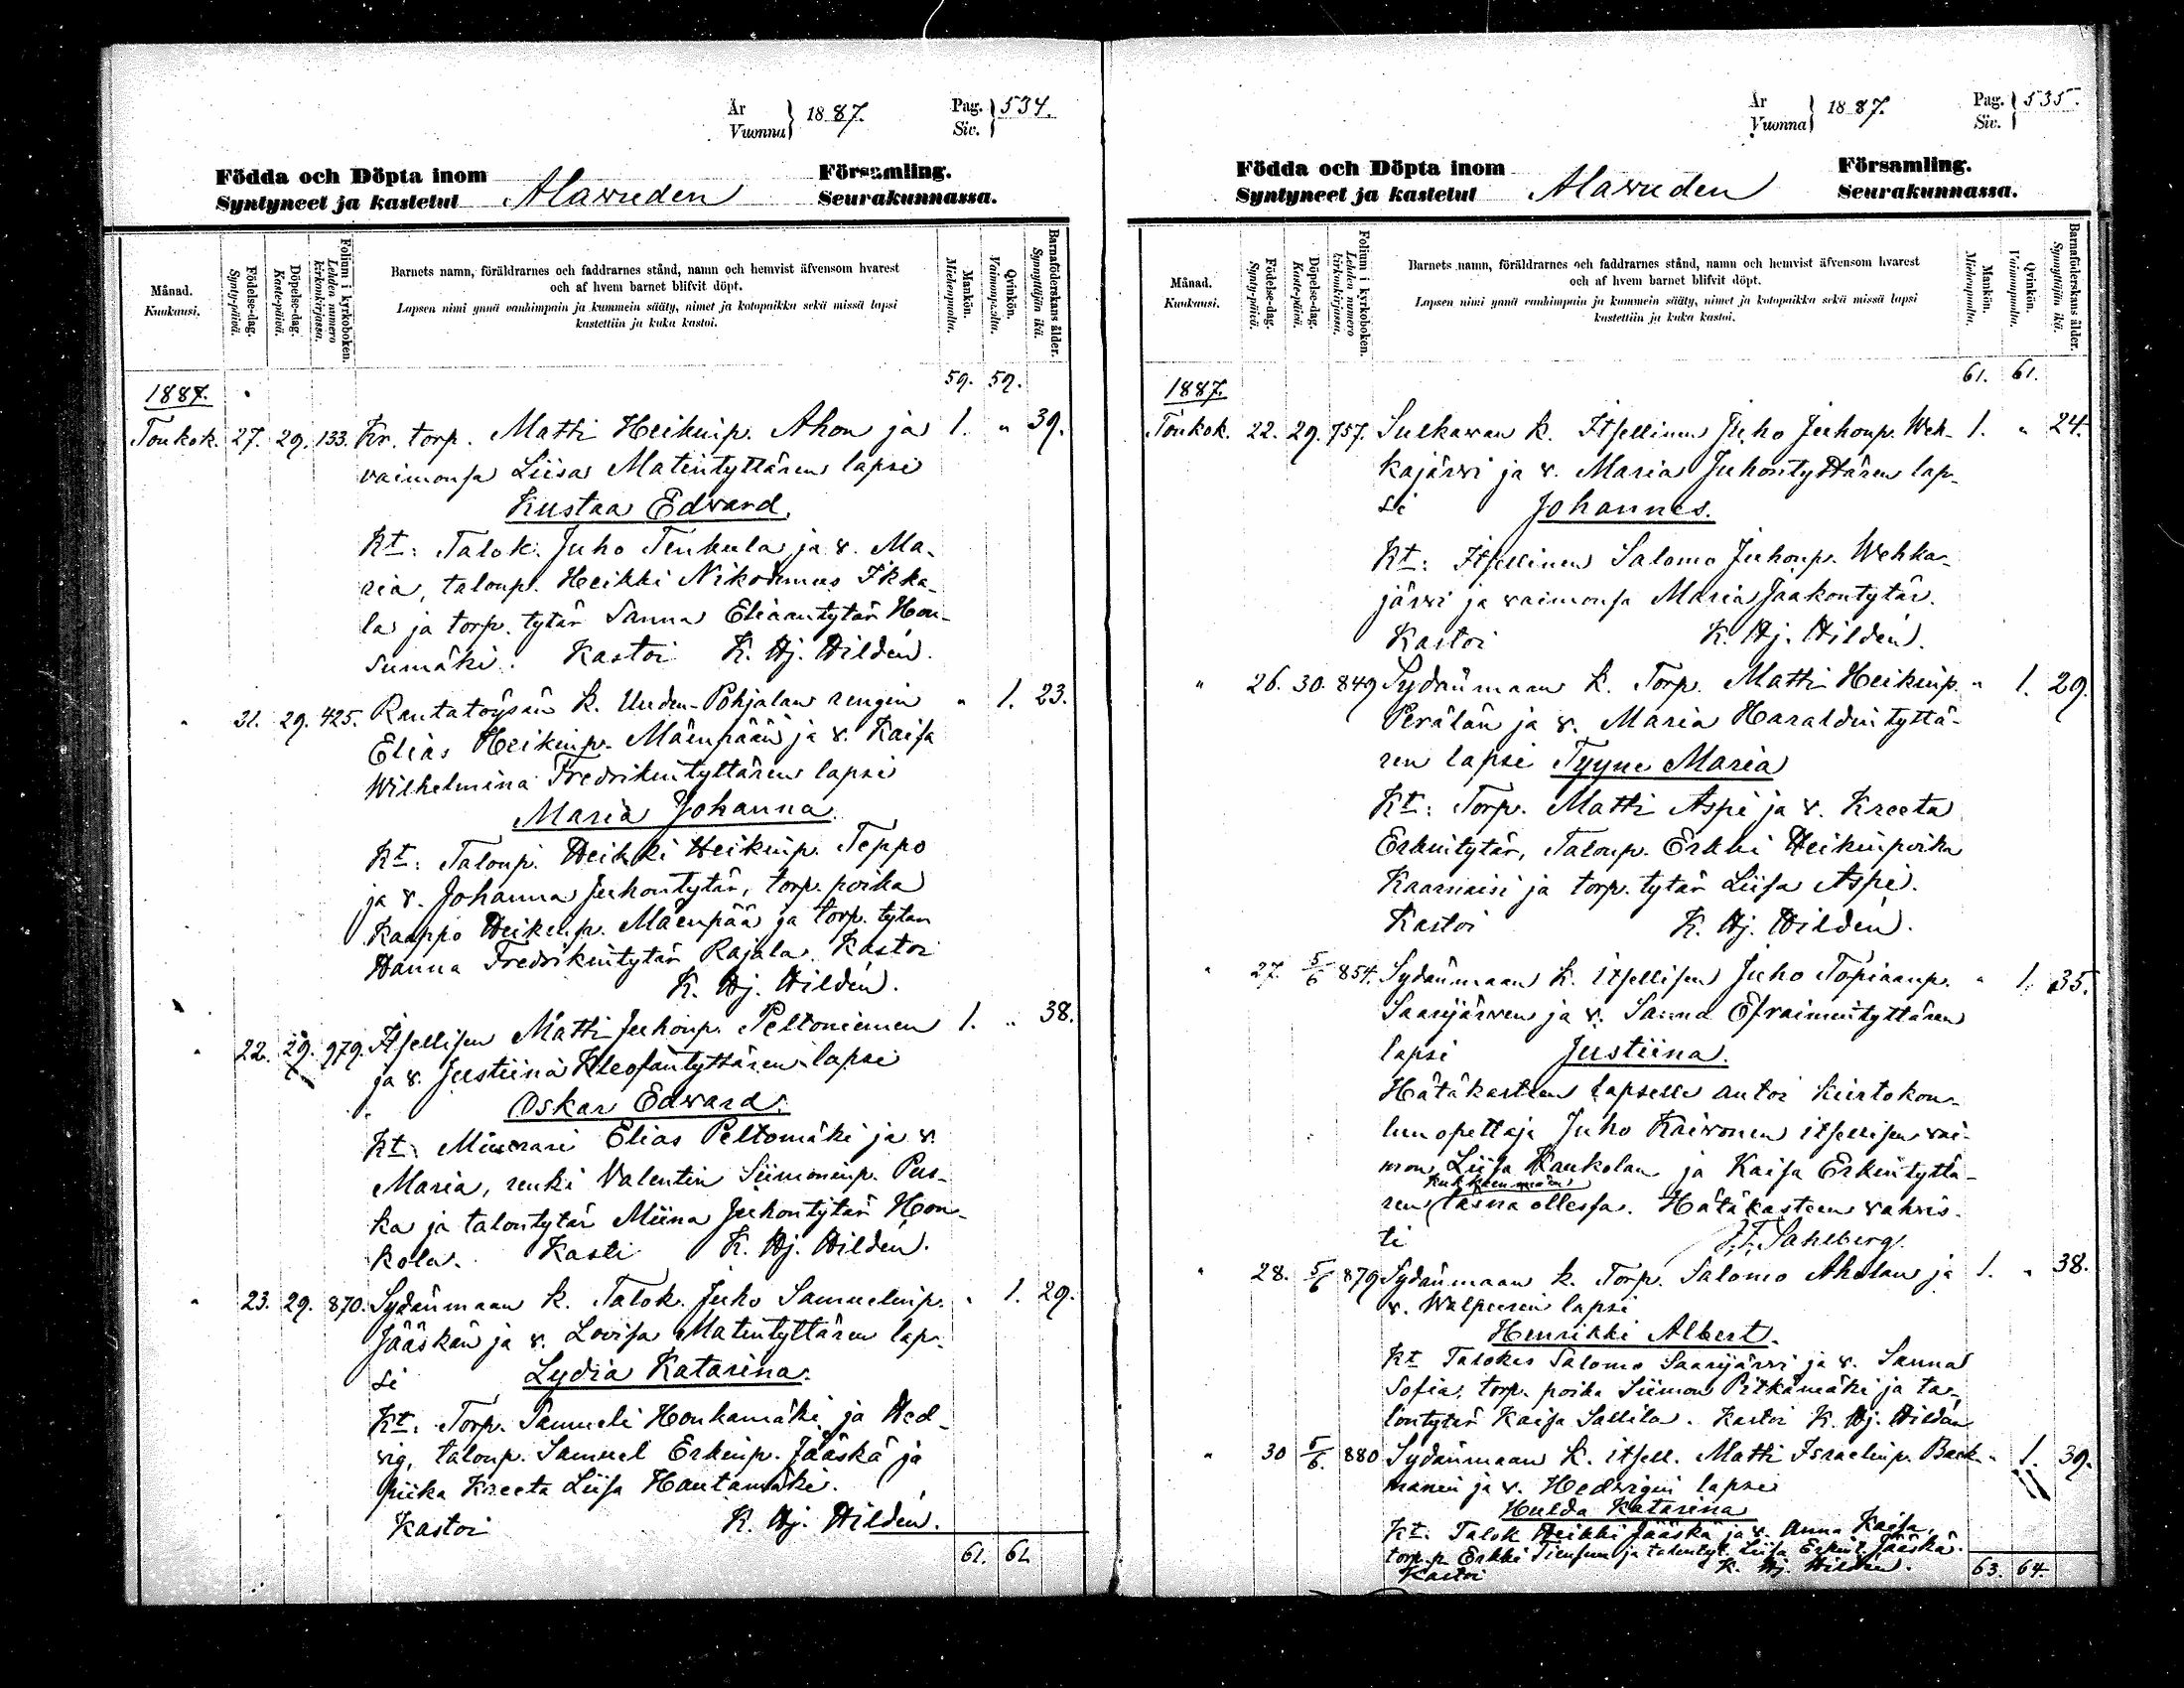 År
Vuonna } 1887.
Pag.
Siv. } 534.
Födda och Döpta inom
Syntyneet ja kastetut
Alavuden
Församling.
Seurakunnassa.
Månad.
Kuukausi.
Födelse-dag.
Synty-päivä.
Döpelse-dag.
Kaste-päivä.
Folium i kyrkoboken.
Lehden numero
kirkonkirjassa.
Barnets namn, föräldrarnes och faddrarnes stånd, namn och hemvist äfvensom hvarest
och af hvem barnet blifvit döpt.
Lapsen nimi ynnä vanhimpain ja kummein sääty, nimet ja kotopaikka sekä missä lapsi
kastettiin ja kuka kastoi.
Mankön.
Miehenpuolta.
Qvinkön.
Vaimonpuolta.
Barnaföderskans ålder.
Synnyttäjän ikä.
1887. 59. 59.
Toukok. 27. 29. 133. Kr. torp. Matti Heikinp. Ahon ja 1. " 39.
vaimonsa Liisa Matintyttären lapsi
Kustaa Edvard.
Kt: Talok. Juho Tenkula ja v. Ma-
ria, taloup. Heikki Nikodemus Ikka-
la ja torp. tytär Sanna Eliaantytär Hou-
sumäki. Kastoi K. Hj. Hildén.
" 21. 29. 425. Rantatöysän k. Uuden-Pohjalan rengin " 1. 23.
Elias Heikinp. Mäenpään ja v. Kaisa
Wilhelmina Fredrikintyttären lapsi
Maria Johanna.
Kt: Taloup. Heikki Heikinp. Teppo
ja v. Johanna Juhontytär, torp. poika
Kaappo Heikinp. Mäenpää ja torp. tytär
Hanna Fredrikintytär Rajala. Kastoi
K. Hj. Hildén.
" 22. 29. 979. Itsellisen Matti Juhonp. Peltoniemen 1. " 38.
ja v. Justiina Kleofantyttären lapsi
Oskar Edvard.
Kt: Muurari Elias Peltomäki ja v.
Maria, renki Valentin Siimoninp. Pus-
ka ja talontytär Miina Juhontytär Hon-
kola. Kasti K. Hj. Hildén.
" 23. 29. 870. Sydänmaan k. Talok. Juho Samuelinp. " 1. 29.
Jääskän ja v. Lovisa Matintyttären lap-
si Lydia Katarina.
Kt: Torp. Samueli Honkamäki ja Hed-
vig, taloup. Samuel Erkinp. Jääskä ja
piika Kreeta Liisa Hautamäki.
Kastoi K. Hj. Hildén.
61. 61
År
Vuonna } 1887.
Pag.
Siv. } 535.
Födda och Döpta inom
Syntyneet ja kastetut
Alavuden
Församling.
Seurakunnassa.
Månad.
Kuukausi.
Födelse-dag.
Synty-päivä.
Döpelse-dag.
Kaste-päivä.
Folium i kyrkoboken.
Lehden numero
kirkonkirjassa.
Barnets namn, föräldrarnes och faddrarnes stånd, namn och hemvist äfvensom hvarest
och af hvem barnet blifvit döpt.
Lapsen nimi ynnä vanhimpain ja kummein sääty, nimet ja kotopaikka sekä missä lapsi
kastettiin ja kuka kastoi.
Mankön.
Miehenpuolta.
Qvinkön.
Vaimonpuolta.
Barnaföderskans ålder.
Synnyttäjän ikä.
1887. 61. 61.
Toukok. 22. 29. 757. Sulkavan k. Itsellinen Juho Juhonp. Weh- 1. " 24.
kajärvi ja v. Maria Juhontyttären lap-
si Johannes.
Kt: Itsellinen Salomo Juhonp. Wehka-
järvi ja vaimonsa Maria Jaakontytär.
Kastoi K. Hj. Hildén.
" 26. 30. 849 Sydänmaan k. Torp. Matti Heikinp. " 1. 29.
Perälän ja v. Maria Haraldintyttä-
ren lapsi Tyyne Maria
Kt: Torp. Matti Aspi ja v. Kreeta
Erkintytär, Taloup. Erkki Heikinpoika
Kaarnaisi ja torp. tytär Liisa Aspi.
Kastoi K. Hj. Hildén.
" 27. 5/6 854. Sydänmaan k. itsellisen Juho Topiaanp. " 1. 35.
Saarijärven ja v. Sanna Efraimintyttären
lapsi Justiina.
Hätäkasteen lapselle antoi kiertokou-
lun opettaja Juho Kaivonen itsellisen vai-
mon Liisa Kaukolan ja Kaisa Erkintyttä-
ren läsnä ollessa. Hätäkasteen vahvis-
ti J.F. Sahlberg.
" 28. 5/6 879 Sydänmaan k. Torp. Salomo Aholan ja 1. " 38.
v. Walpurin lapsi
Henrikki Albert.
Kt Talokas Salomo Saarijärvi ja v. Sanna
Sofia, torp. poika Siimon Pitkämäki ja ta-
lontytär Kaisa Sallila. Kastoi K. Hj. Hildén
" 30 5/6. 880 Sydänmaan k. itsell. Matti Israelinp. Back- " 1. 39.
manin ja v. Hedvigin lapsi
Hulda Katarina
Kt. Talok Heikki Jääskä ja v. Anna Kaisa,
torp. p. Erkki Tiensuu ja talontyt. Liisa Erkint. Jääskä.
Kastoi K. Hj. Hildén. 63. 64.